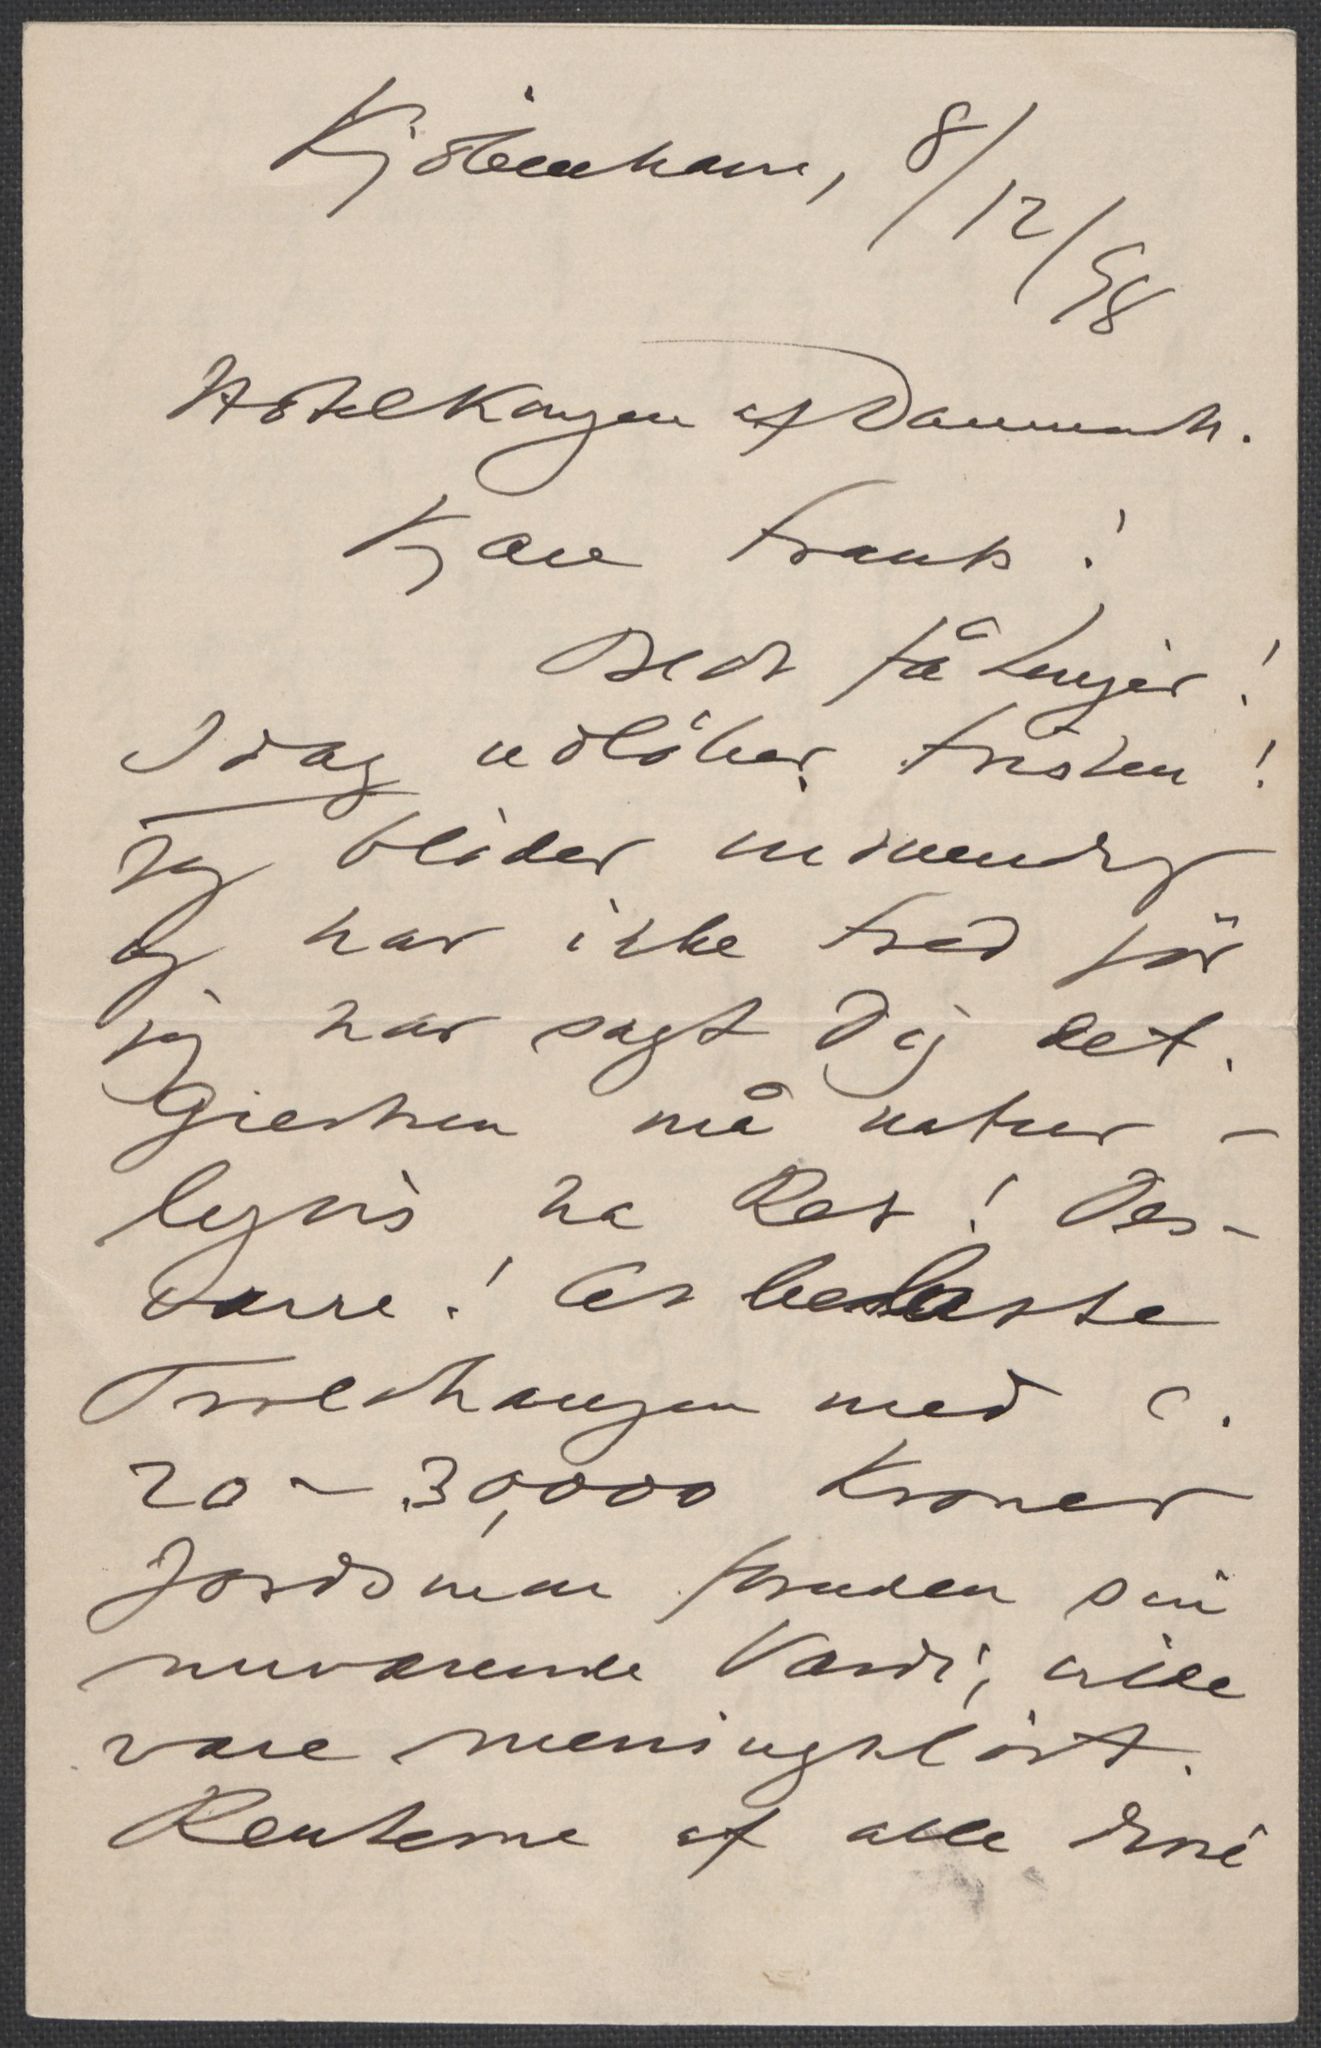 Kjöbenhavn, 8/12/98
Hotel Kongen af Danmark.
Kjære Frants!
Blot få Linjer!
Idag udlöber Fristen!
Jeg bløder indvendig
og har ikke Fred för
jeg har sagt Dig det.
Giertsen må natur-
ligvis ha Ret! Des-
værre! At belaste
Troldhaugen med c.
20–30,000 Kroner
Jordsmon foruden sin
nuværende Værdi, vilde
være meningslöst.
Renterne af alle disse